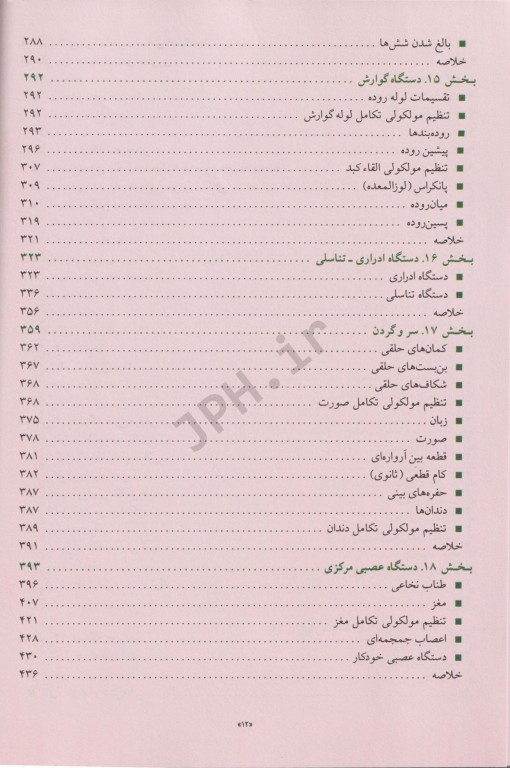 ■ بالغ شدن شش‌ها ........ ۲۸۸
خلاصه ........ ۲۹۰
بـخـش ۱۵. دستگاه گوارش ........ ۲۹۲
■ تقسیمات لوله روده ........ ۲۹۲
■ تنظیم مولکولی تکامل لوله گوارش ........ ۲۹۲
■ روده‌بندها ........ ۲۹۳
■ پیشین روده ........ ۲۹۶
■ تنظیم مولکولی القاء کبد ........ ۳۰۷
■ پانکراس (لوزالمعده) ........ ۳۰۹
■ میان‌روده ........ ۳۱۰
■ پسین‌روده ........ ۳۱۹
خلاصه ........ ۳۲۱
بـخـش ۱۶. دستگاه ادراری ـ تناسلی ........ ۳۲۳
■ دستگاه ادراری ........ ۳۲۳
■ دستگاه تناسلی ........ ۳۳۶
خلاصه ........ ۳۵۶
بـخـش ۱۷. سر و گردن ........ ۳۵۹
■ کمان‌های حلقی ........ ۳۶۲
■ بن‌بست‌های حلقی ........ ۳۶۷
■ شکاف‌های حلقی ........ ۳۶۸
■ تنظیم مولکولی تکامل صورت ........ ۳۶۸
■ زبان ........ ۳۷۵
■ صورت ........ ۳۷۸
■ قطعه بین آرواره‌ای ........ ۳۸۱
■ کام قطعی (ثانوی) ........ ۳۸۲
■ حفره‌های بینی ........ ۳۸۷
■ دندان‌ها ........ ۳۸۷
■ تنظیم مولکولی تکامل دندان ........ ۳۸۹
خلاصه ........ ۳۹۱
بـخـش ۱۸. دستگاه عصبی مرکزی ........ ۳۹۳
■ طناب نخاعی ........ ۳۹۶
■ مغز ........ ۴۰۷
■ تنظیم مولکولی تکامل مغز ........ ۴۲۱
■ اعصاب جمجمه‌ای ........ ۴۲۸
■ دستگاه عصبی خودکار ........ ۴۳۰
خلاصه ........ ۴۳۶
«۱۲»
JPH.ir